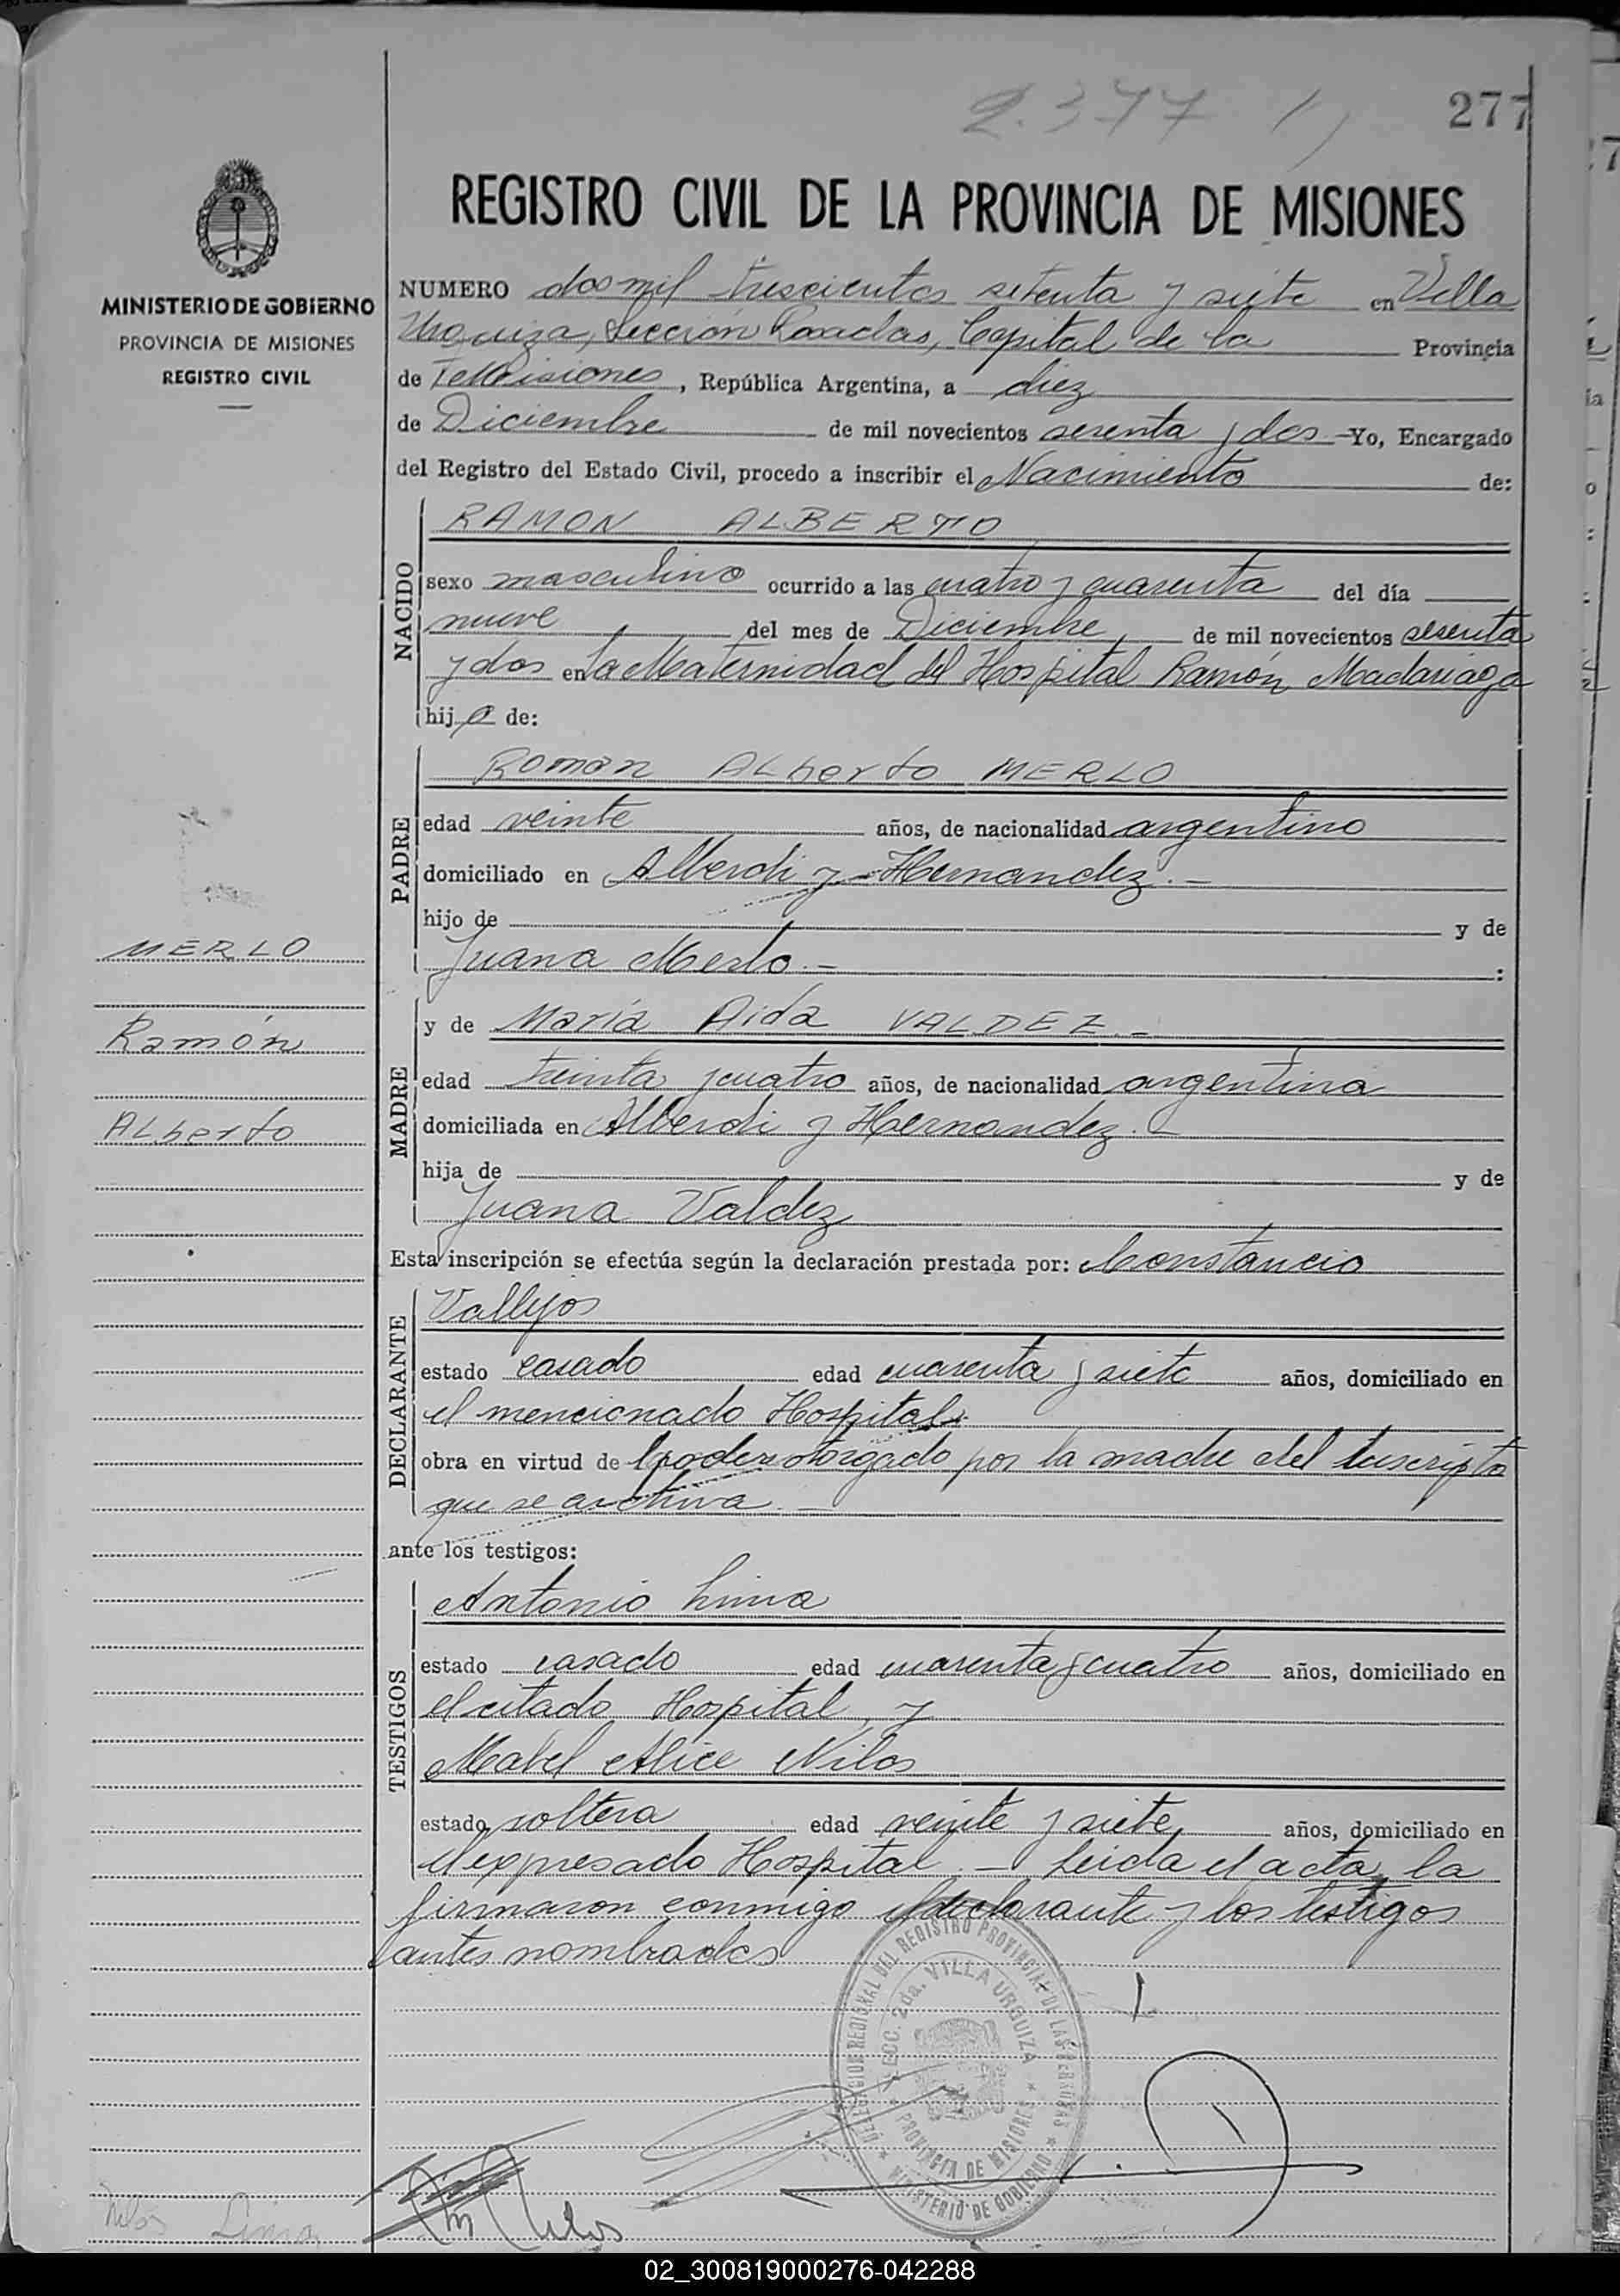 2.377
277
REGISTRO CIVIL DE LA PROVINCIA DE MISIONES
MINISTERIO DE GOBIERNO
PROVINCIA DE MISIONES
REGISTRO CIVIL
NUMERO dos mil trescientos setenta y siete en Villa
Urquiza, Sección Posadas, Capital de la Provincia
de Misiones, República Argentina, a diez
de Diciembre de mil novecientos sesenta y dos Yo, Encargado
del Registro del Estado Civil, procedo a inscribir el Nacimiento de:
NACIDO
RAMON ALBERTO
sexo masculino ocurrido a las cuatro y cuarenta del día
nueve del mes de Diciembre, de mil novecientos sesenta
y dos en la Maternidad del Hospital Ramón Madariaga
hijo de:
PADRE
Roman Alberto MERLO
edad veinte años, de nacionalidad argentino
domiciliado en Alberdi y Hernandez.-
hijo de y de
Juana Merlo.- :
MERLO
Ramón
Alberto
MADRE
y de María Aida VALDEZ.-
edad treinta y cuatro años, de nacionalidad argentina
domiciliada en Alberdi y Hernandez.-
hija de y de
Juana Valdez
Esta inscripción se efectúa según la declaración prestada por: Constancio
DECLARANTE
Vallejos
estado casado edad cuarenta y siete años, domiciliado en
el mencionado Hospital.-
obra en virtud de poder otorgado por la madre del inscripto
que se archiva.-
ante los testigos:
TESTIGOS
Antonio Lima
estado casado edad cuarenta y cuatro años, domiciliado en
el citado Hospital, y
Mabel Alice Nilos
estado soltera edad veinte y siete años, domiciliado en
el expresado Hospital.- Leida el acta, la
firmaron conmigo el declarante y los testigos
antes nombrados
DELEGACION REGIONAL DEL REGISTRO PROVINCIAL DE LAS PERSONAS
SECC. 2da. VILLA URQUIZA
PROVINCIA DE MISIONES
MINISTERIO DE GOBIERNO
Nilos Lima
Nilos
02_300819000276-042288